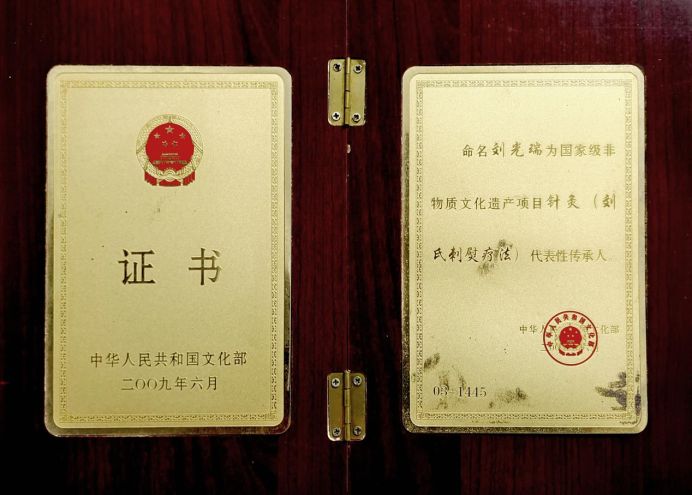 证书
中华人民共和国文化部
二〇〇九年六月
命名刘光瑞为国家级非
物质文化遗产项目针灸（刘
氏刺熨疗法）代表性传承人
中华人 化部
中华人民共和国文化部
03-1445